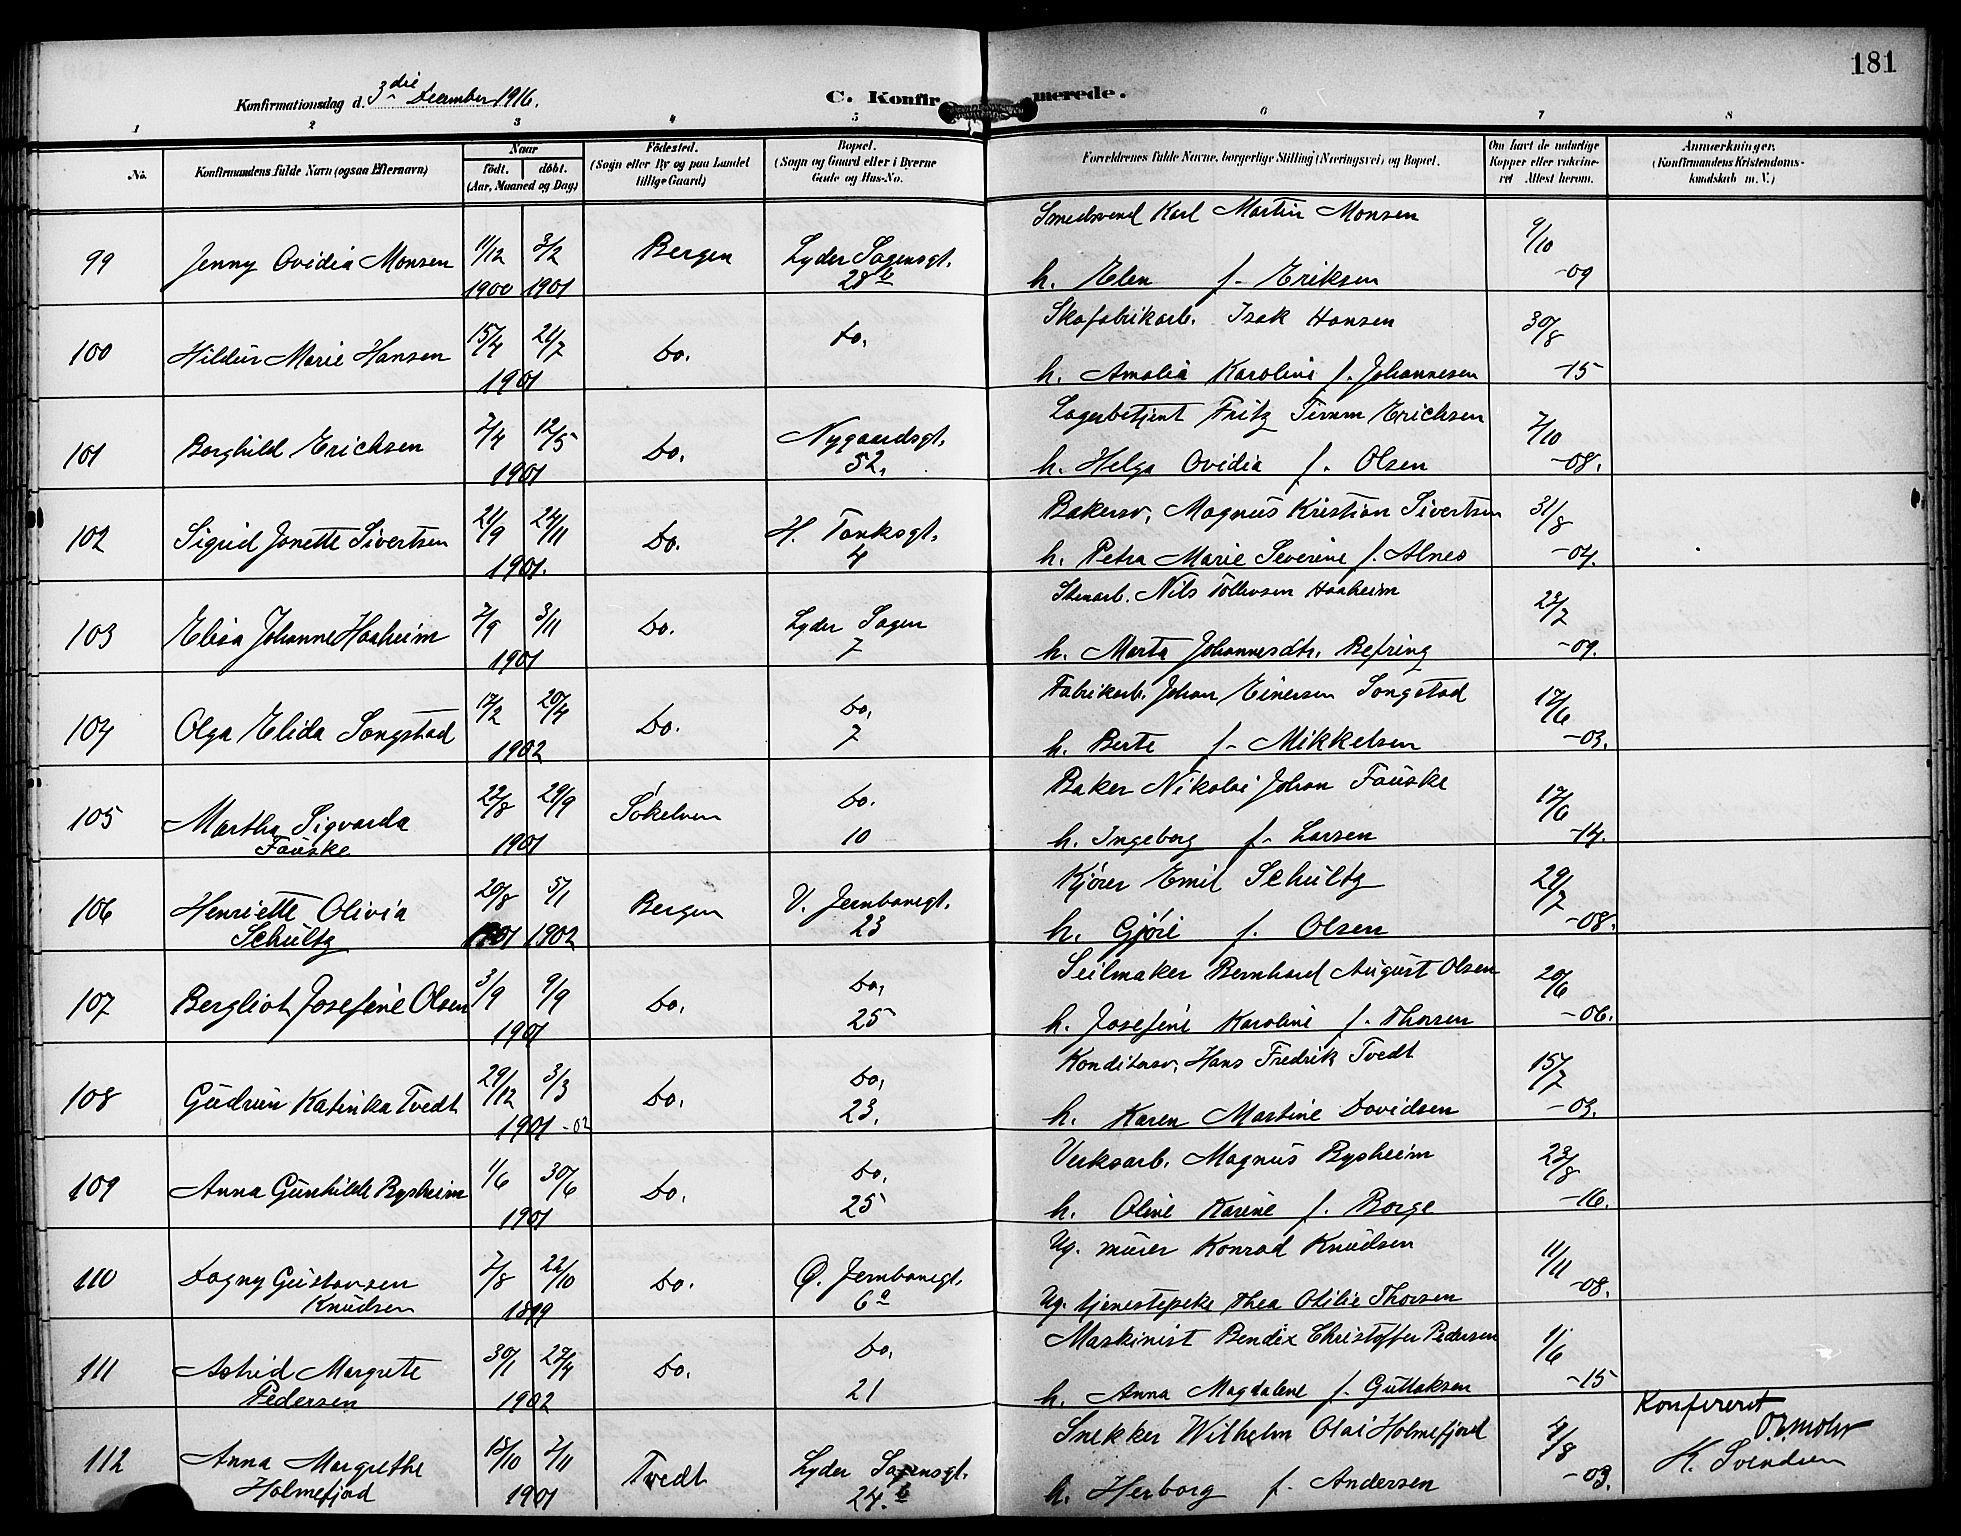 181
Konfirmationsdag d. 3die December 1916.
C. Konfirmerede.
1 2 3 4 5 6 7 8
No. Konfirmandens fulde Navn (ogsaa Efternavn) Naar født. døbt. (Aar, Maaned og Dag) Fødested. (Sogn eller By og paa Landet tillige Gaard) Bopæl. (Sogn og Gaard eller i Byerne Gade og Hus-No. Forældrenes fulde Navne, borgerlige Stilling (Næringsvei) og Bopæl. Om havt de naturlige Kopper eller vaksineret Attest herom. Anmærkninger. (Konfirmandens Kristendomskundskab m. V.)
Smedsvend Karl Martin Monsen
99 Jenny Ovidia Monsen 11/12 3/2 Bergen Lyder Sagensgt. 9/10
1900 1901 28b h. Elen f. Eriksen -09
Skofabrikarb. Isak Hansen
100 Hildur Marie Hansen 15/4 21/7 do. do. 30/8
1901 h. Amalia Karoline f. Johannesen -15
Lagerbetjent Fritz Timm Erichsen
101 Borghild Erichsen 7/4 12/5 do. Nygaardsgt. 7/10
1901 52. h. Helga Ovidia f. Olsen -08.
Bakersv. Magnus Kristian Sivertsen
102 Sigrid Jonette Sivertsen 21/9 24/11 do. H. Tanksgt. 31/8
1901. 4 h. Petra Marie Severine f. Alnes -04.
Stenarb. Nils Tollevsen Haaheim
103 Elisa Johanne Haaheim 7/9 3/11 do. Lyder Sagen 23/7
1901 7 h. Marta Johannesdtr. Refring -09.
Fabrikarb. Johan Einersen Songstad
104 Olga Elida Songstad 17/2 20/4 do. do. 17/6
1902 7 h. Berte f. Mikkelsen -03.
Baker Nikolai Johan Fauske
105 Martha Sigvarda 22/8 29/9 Søkelven do. 17/6
Fauske 1901 10 h. Ingeborg f. Larsen -14.
Kjører Emil Schultz
106 Henriette Olivia 20/8 5/1 Bergen V. Jernbanegt. 29/7
Schultz 1901 1902 23 h. Gjøri f. Olsen -08.
Seilmaker Bernhard August Olsen
107 Bergliot Josefine Olsen 3/9 9/9 do. do. 20/6
1901 25 h. Josefine Karoline f. Thorsen -06.
Konditorsv. Hans Fredrik Tvedt
108 Gudrun Katinka Tvedt 29/12 3/3 do. do. 15/7
1901 -02 23. h. Karen Martine Davidsen -03.
Verksarb. Magnus Bysheim
109 Anna Gunhilde Bysheim 1/6 30/6 do. do. 23/8
1901 25 h. Oline Karine f. Borge -16.
Ug. murer Konrad Knudsen
110 Dagny Gustavsen 7/8 22/10 do. Ø. Jernbanegt. 11/11
Knudsen 1899 6a Ug. tjenestepike Thea Otilie Thorsen -08.
Maskinist Bendix Christoffer Pedersen
111 Astrid Margrete 30/1 27/4 do. do. 1/6
Pedersen 1902 21 h. Anna Magdalene f. Guttaksen -15
Snekker Wilhelm Olai Holmefjord Konfereret
112 Anna Margrethe 18/10 7/11 Tvedt Lyder Sagensgt. 4/8 K. Svendsen
Holmefjord 1901 24.b h. Herborg f. Andersen -03.